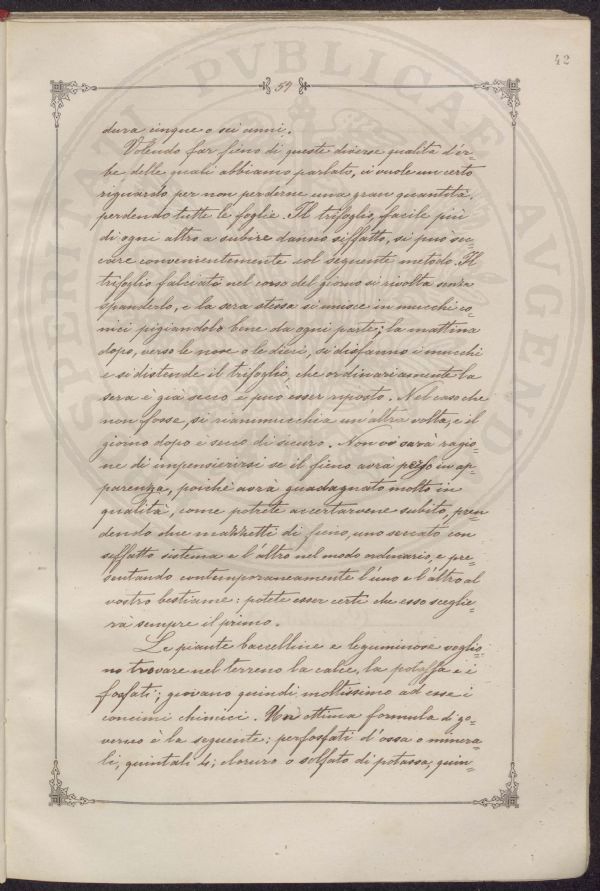 42
57
SPERITATI PVBLICAE AVGENDA
dura cinque o sei anni.
Volendo far fieno di queste diverse qualità d'er-
be delle quali abbiamo parlato, ci vuole un certo
riguardo per non perderne una gran quantità,
perdendo tutte le foglie. Il trifoglio, facile più
di ogni altro a subire danno siffatto, si può sec-
care convenientemente col seguente metodo. Il
trifoglio falciato nel corso del giorno si rivolta senza
spanderlo, e la sera stessa si unisce in mucchi co-
nici pigiandolo bene da ogni parte; la mattina
dopo, verso le nove o le dieci, si disfanno i mucchi
e si distende il trifoglio, che ordinariamente la
sera è già secco e può esser riposto. Nel caso che
non fosse, si riammucchia un'altra volta, e il
giorno dopo è secco di sicuro. Non vi sarà ragio-
ne di impensierirsi se il fieno avrà perso in ap-
parenza, poichè avrà guadagnato molto in
qualità, come potrete accertarvene subito, pren-
dendo due mazzetti di fieno, uno seccato con
siffatto sistema e l'altro nel modo ordinario, e pre-
sentando contemporaneamente l'uno e l'altro al
vostro bestiame: potete esser certi che esso sceglie-
rà sempre il primo.
Le piante baccelline e leguminose voglio-
no trovare nel terreno la calce, la potassa e i
fosfati; giovano quindi moltissimo ad esse i
concimi chimici. Una ottima formula di go-
verno è la seguente: perfosfati d'ossa o minera-
li, quintali 4; cloruro o solfato di potassa, quin-